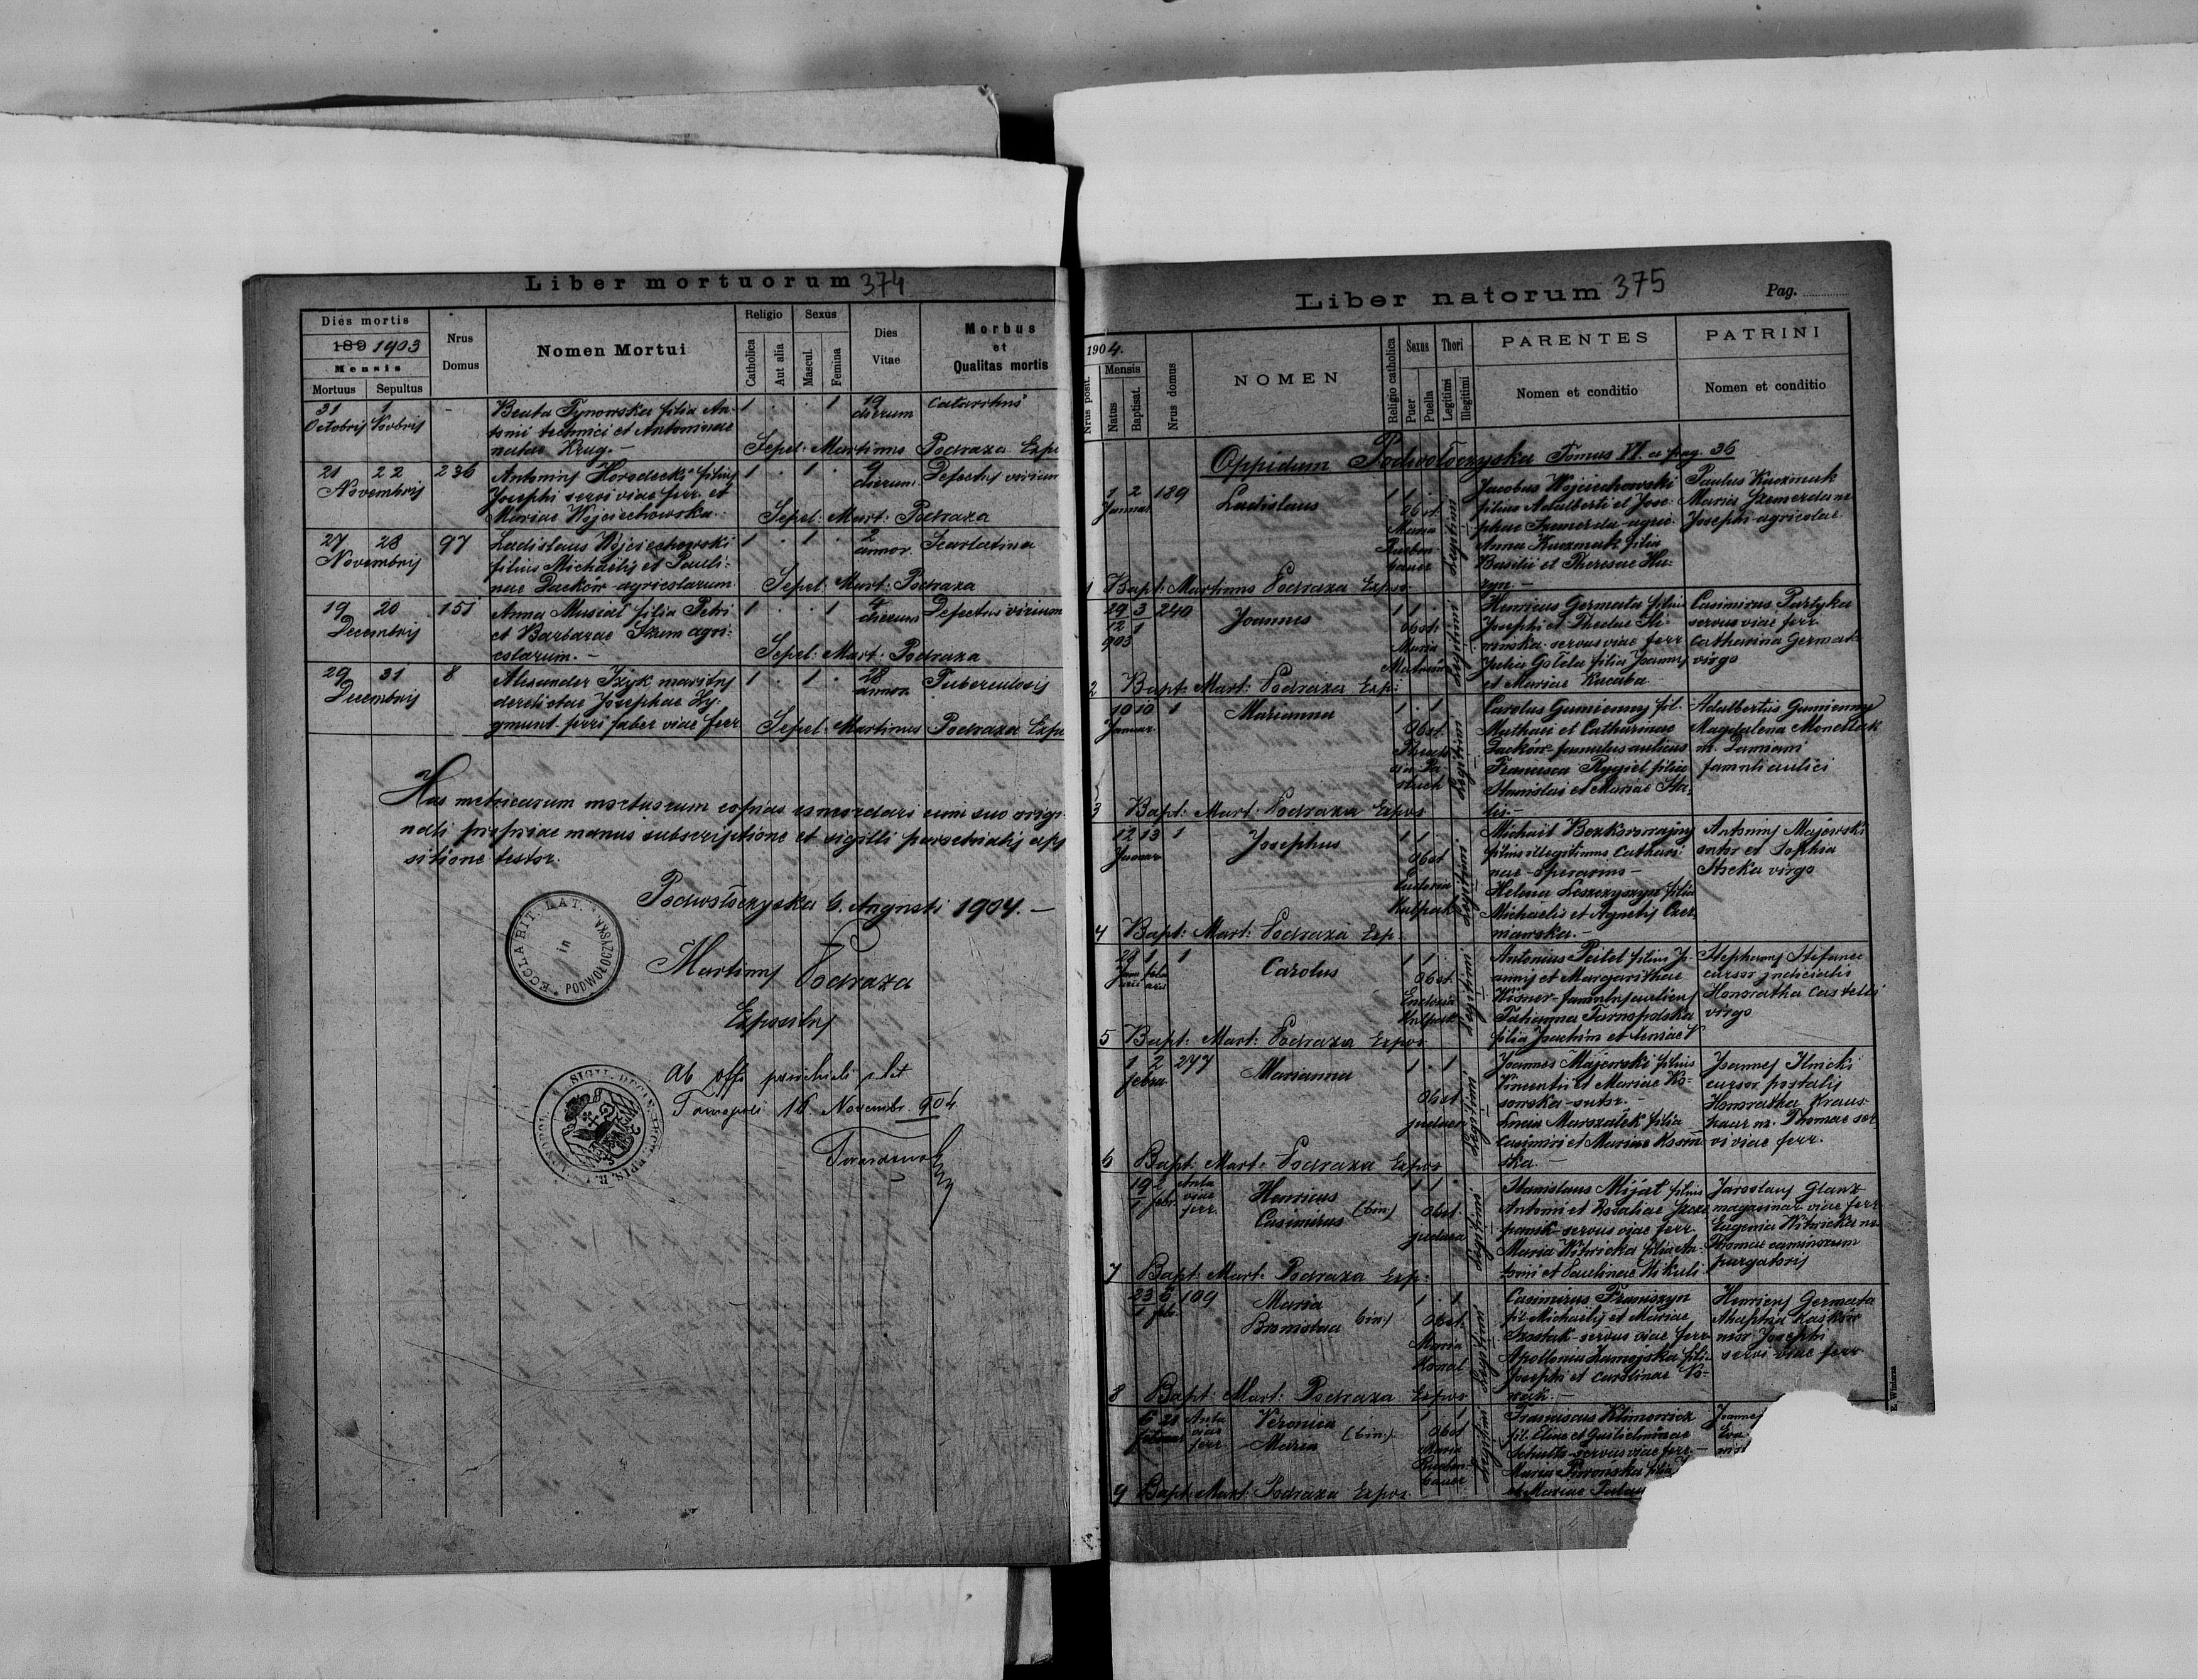 Liber mortuorum 374
Dies mortis
189 1903
Mensis
Mortuus Sepultus
Nrus Domus
Nomen Mortui
Religio
Catholica
Aut alia
Sexus
Mascul.
Femina
Dies Vitae
Morbus
et
Qualitas mortis
31 1 - Beata Tynowska filia An- 1 . . 1 19 Catarrhus
Octobris Novbris tonii technici et Antoninae dierum
natae Krug. - Sepel: Martinus Podraza Expo
21 22 236 Antonius Horodecki filius 1 . 1 . 9 Defectus virium
Novembris Josephi servi viae ferr. et dierum
Mariae Wojciechowska. Sepel: Mart: Podraza
27 28 97 Ladislaus Wojciechowski 1 . 1 . 2 Scarlatina
Novembris filius Michaëlis et Pauli- annor.
nae Daćków agricolarum Sepel: Mart: Podraza
19 20 151 Anna Muscał filia Petri 1 . . 1 4 Defectus virium
Decembris et Barbarae agri- dierum
colarum. - Sepel: Mart: Podraza
29 31 8 Alexander Izyk maritus 1 . 1 . 28 Tuberculosis
Decembris derelictae Josephae Zy- annor.
gmunt ferri faber viae ferr Sepel: Martinus Podraza Expo
Has metricarum mortuorum copias concordari cum suo origi
nali propriae manus subscriptione et sigilli parochialis app
sitione testor.
Podwołoczyska 6. Augusti 1904. -
ECCLA RIT. LAT. in PODWOŁOCZYSKA
Martinus Podraza
Expositus
Ab offo parochiali
Tarnopoli 16 Novembr. 904
Liber natorum 375
Pag.
1904.
Nrus posit.
Mensis
Natus
Baptisat.
Nrus domus
NOMEN
Religio catholica
Sexus
Puer
Puella
Thori
Legitimi
Illegitimi
PARENTES
Nomen et conditio
PATRINI
Nomen et conditio
Oppidum Podwołoczyska Tomus VI. a pag. 36
1 2 189 Ladislaus 1 1 . Jacobus Wojciechowski Paulus Kaczmak
Januar Obst. filius Adalberti et Jose- Maria
Maria phae agric. Josephi agricolae
Anna Kaczmak filia
Legitimi Basilii et Theresae Hu-
1 Bapt: Martinus Podraza Expos zyn. -
29 3 240 Joannes 1 1 . Henricus Germata filius Casimirus Partyka
12 1 Obst. Josephi et Theclae Sli- servus viae ferr.
903 Maria winska servus viae ferr Catharina Germat
Legitimi Julia Gołda filia Joannis virgo
2 Bapt: Mart: Podraza Exp: et Mariae Kacaba
10 10 1 Marianna 1 . 1 Carolus Gumienny fil. Adalbertus Gumienny
Januar. Obst. Mathaei et Catharinae Magdalena
Daćków famulus aulicus m. Damiani
Francisca Rygiel filia famuli aulici
Legitimi Stanislai et Mariae
3 Bapt: Mart: Podraza Expos
12 13 1 Josephus 1 1 Michaël Bezkorowajny Antonius Majewski
Januar Obst filius illegitimus Cathari- sutor et Sophia
nae operarius - virgo
Legitimi Helena Leszczyszyn filia
Michaelis et Agnetis Czer
4 Bapt: Mart: Podraza Exp. niawska. -
1 1 Carolus 1 1 Antonius Peitel filius Jo- Stephanus Stefaniec
Obst. annis et Margarithae cursor judicialis
Wisner famulus aulicus Honoratha Castelli
Legitimi Tatianna Tarnopolska virgo
5 Bapt: Mart: Podraza Expos filia Joachim et
1 2 247 Marianna 1 . 1 Joannes Majewski filius Joannes Ilnicki
febru Obst. Vincentii et Mariae Ko- cursor postalis
judaea sowska sutor. - Honoratha Kraus-
Legitimi Lucia Marszałek filia m. Thomae ser
Casimiri et Mariae vi viae ferr.
6 Bapt: Mart: Podraza Expos ska. -
19 2 viae Henricus (bin.) 1 1 . Stanislaus Mijał filius Jaroslaus Glanz
1 febr. ferr. Casimirus Obst. Antonii et Rosaliae magazinar viae ferr
judaea servus viae ferr. Eugenia Witwicka
Legitimi Maria Witwicka filia An- Thomae caminorum
7 Bapt: Mart: Podraza Exp: tonii et Paulinae Nikuli purgatoris
23 6 109 Maria (bin.) 1 . 1 Casimirus Franiszyn Henricus Germata
1 febr. Bronislaa Obst. fil. Michaëlis et Mariae
Maria Szostak servus viae ferr Josephi
Kowal Apollonia Zamojska filia servi viae ferr
Legitimi Josephi et Carolinae No-
8 Bapt: Mart: Podraza Expos wak. -
6 21 viae Veronica (bin.) 1 1 Franciscus Klimowicz Joannes
ferr Maria Obst fil. Eliae et Guilielminae Eva
Maria Schultz servus viae ferr. -
Legitimi Maria filia
9 Bapt: Mart: Podraza Expos. et Mariae